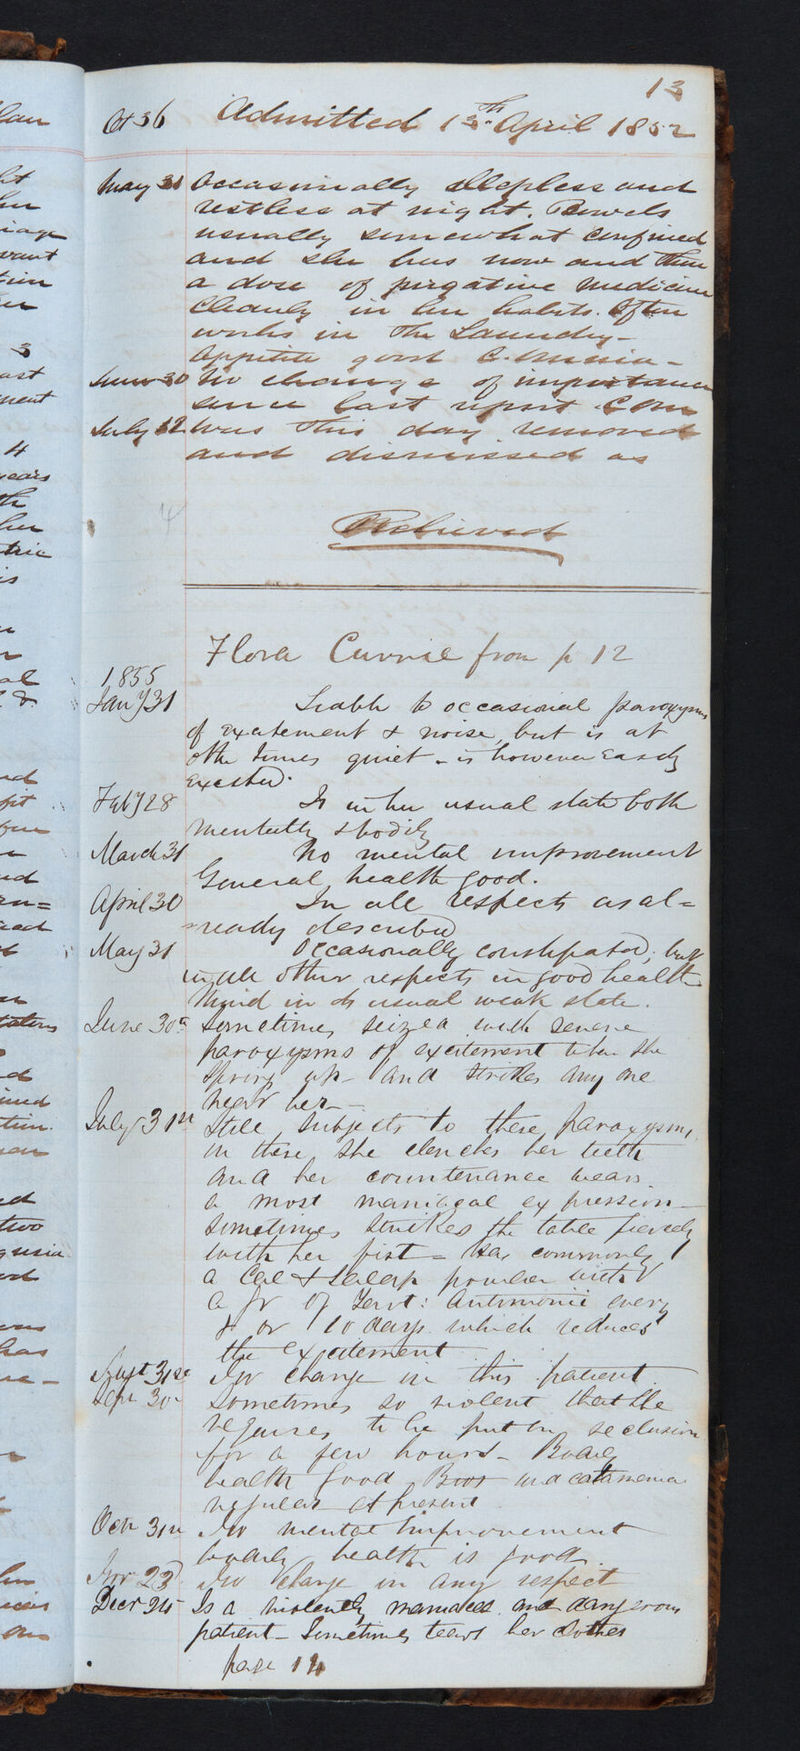 13
Admitted 13th April 1852
May 31 Occasionally sleepless and
restless at night. Bowels
usually somewhat confined
and she has now and then
a dose of purgative medicine
Cleanly in her habits. Often
works in the Laundry -
Appetite good
June 30 No change of importance
since last report
July 12 Was this day removed
and dismissed as
Relieved
Flora Currie from p 12
1855
Jany 31 Liable to occasional paroxysms
of excitement & noise, but is at
other times quiet - is however easily
excited.
Feby 28 Is in her usual state both
mentally & bodily
March 31 No mental improvement
General health good.
April 30 In all respects as al=
=ready described
May 31 Occasionally constipated; but
in all other respects in good health
Mind in its usual weak state.
June 30th Sometimes seized with severe
paroxysms of excitement when she
springs up - and strikes any one
near her -
July 31st Still subject to these paroxysms,
in these she clenches her teeth
and her countenance wears
a most maniacal expression -
sometimes strikes the table fiercely
with her fist - Has commonly
a Cal & Jalap powder with
a gr of Tart: Antimonii every
8 or 10 days which reduces
the excitement
Augt 31st No change in this patient
Sepr 30th Sometimes so violent that she
requires to be put in seclusion
for a few hours - Bodily
health good and catamenia
regular at present
Octr 31st No mental improvement
bodily health is good
Nov 23d No change in any respect
Decr 24 Is a violently maniacal and dangerous
patient - Sometimes tears her clothes
page 14